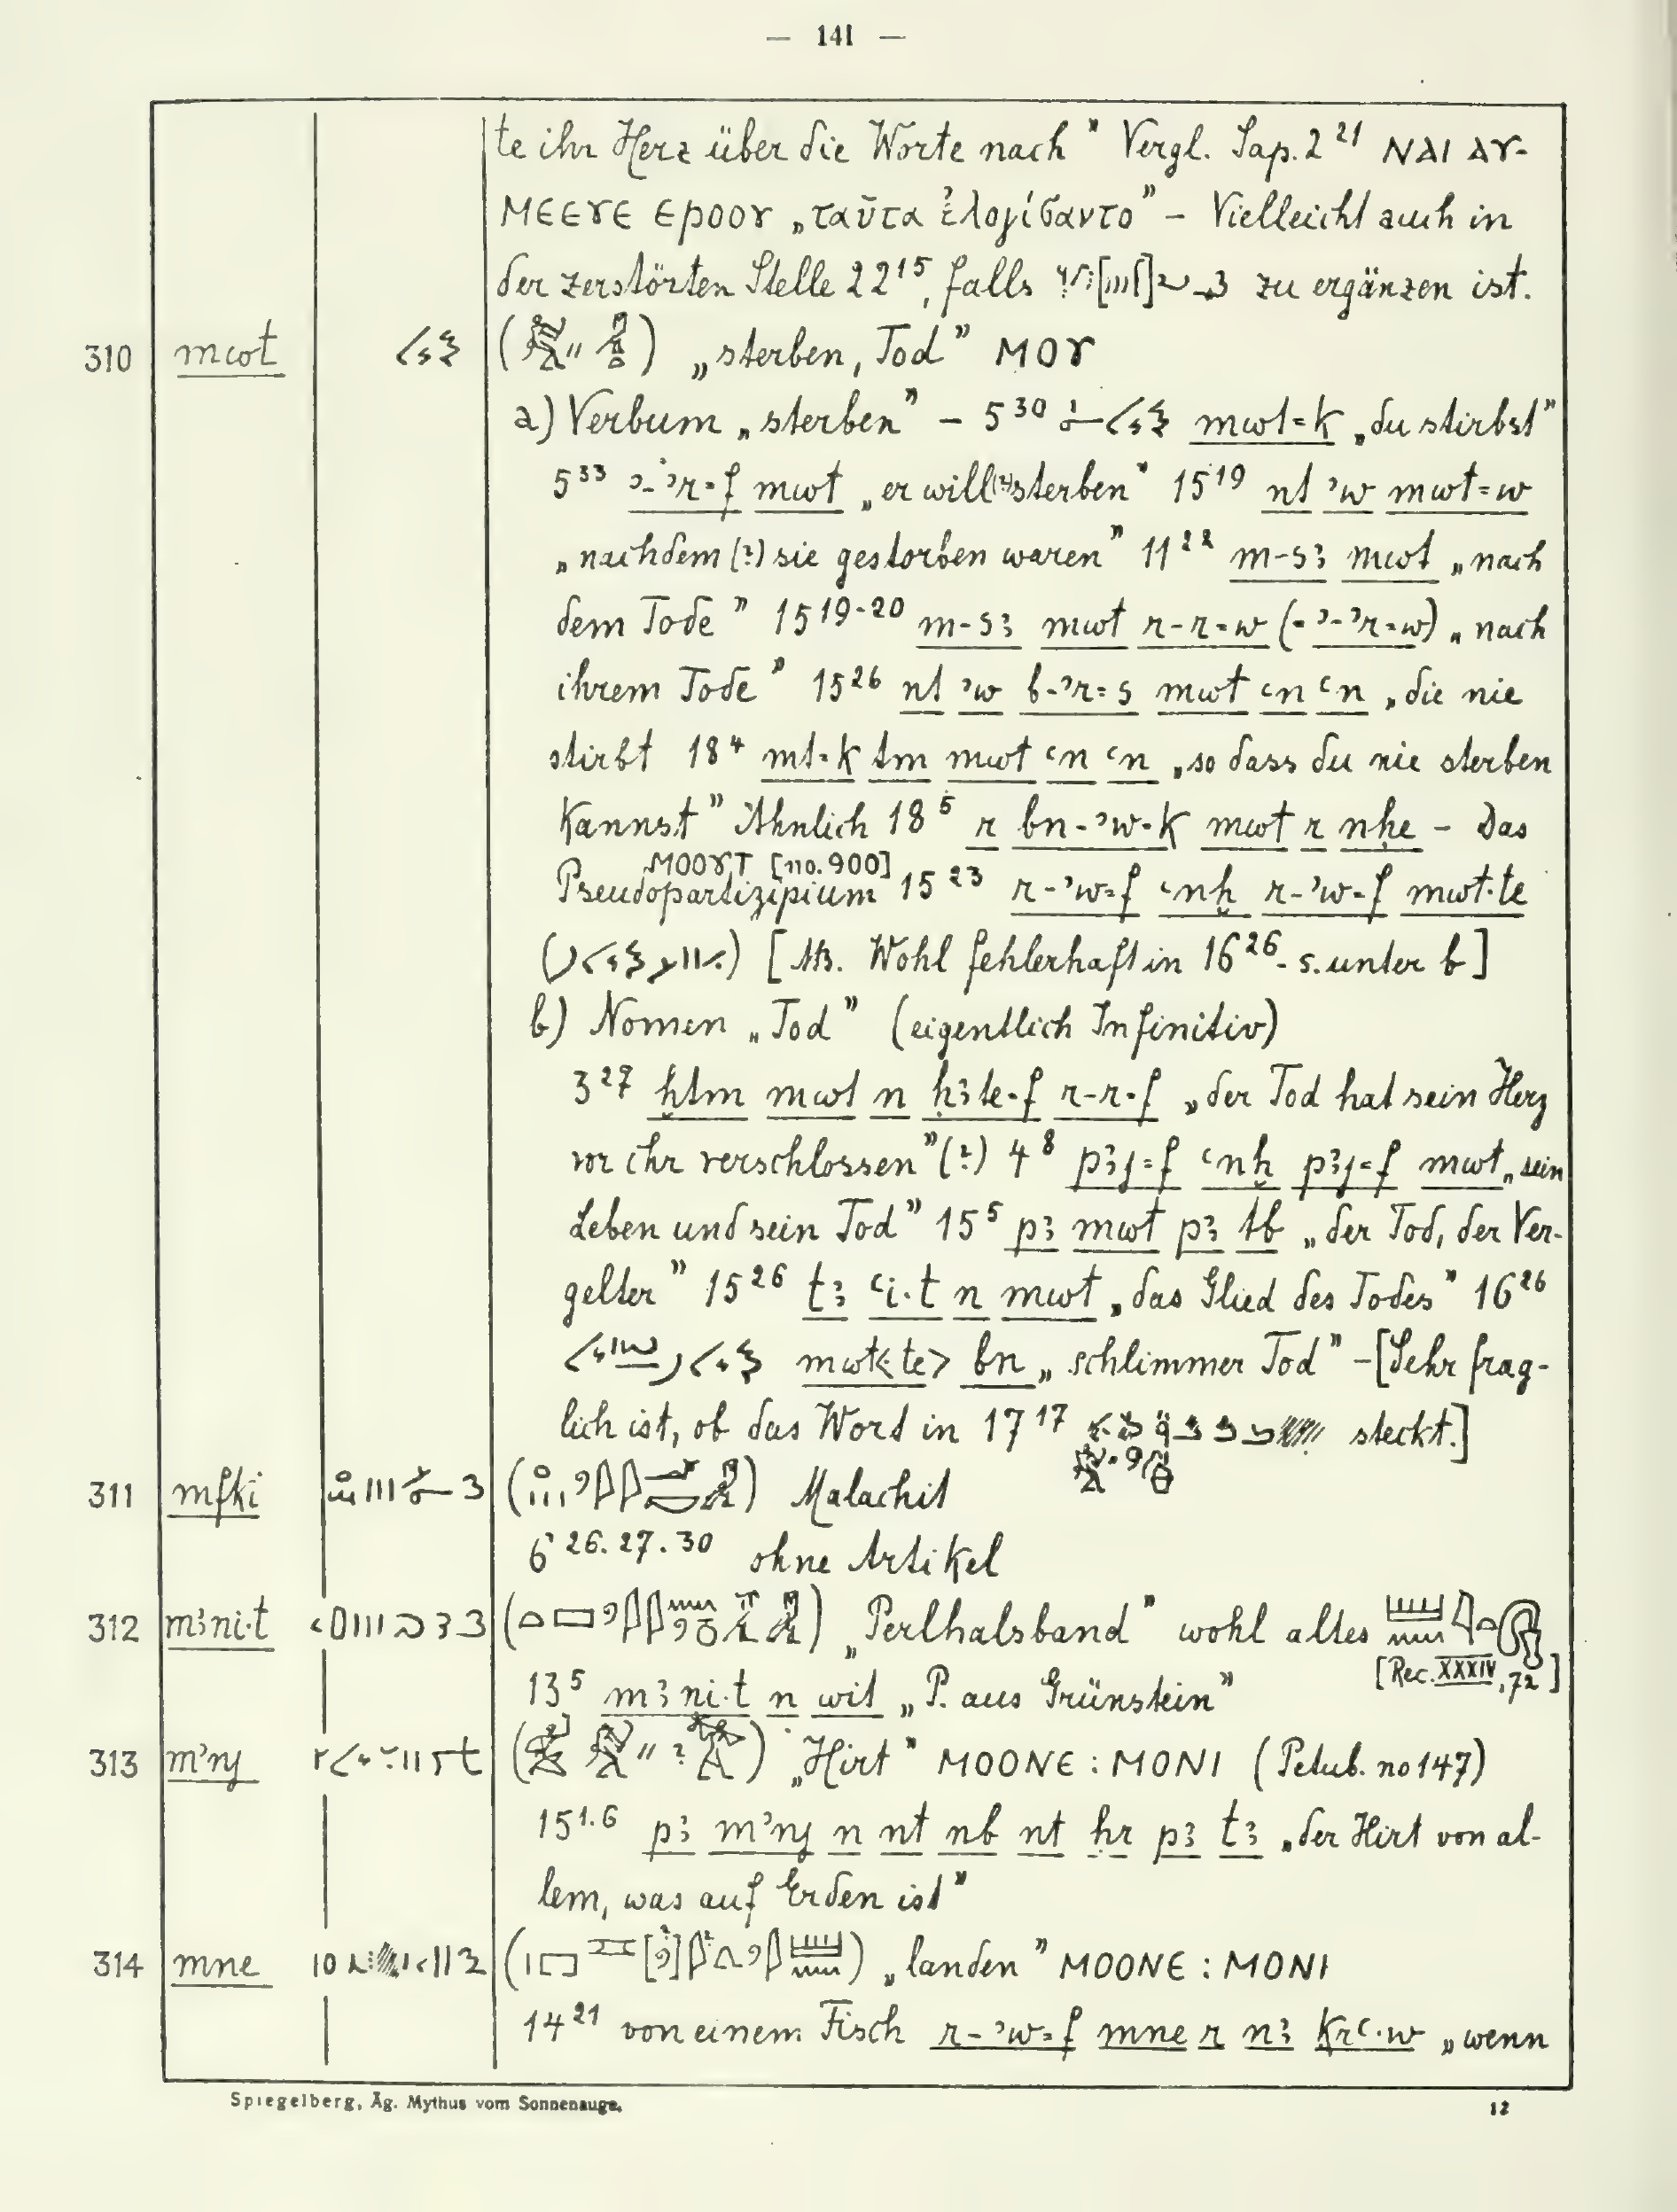 — 141 —
te ihr Herz über die Worte nach" Vergl. Sap. 2²¹ ⲚⲀⲒ ⲀⲨ-
ⲘⲈⲈⲨⲈ ⲈⲢⲞⲞⲨ „ταῦτα ἐλογίσαντο" – Vielleicht auch in
der zerstörten Stelle 22¹⁵, falls zu ergänzen ist.
310 mwt „sterben, Tod" ⲘⲞⲨ
a) Verbum „sterben" – 5³⁰ mwt=k „du stirbst"
5³³ ꜣ-ꜣr=f mwt „er will(?) sterben" 15¹⁹ nt ꜣw mwt=w
„nachdem (?) sie gestorben waren" 11²² m-sꜣ mwt „nach
dem Tode" 15¹⁹⁻²⁰ m-sꜣ mwt r-r=w (= ꜣ-ꜣr=w) „nach
ihrem Tode" 15²⁶ nt ꜣw b-ꜣr=s mwt ꜥn ꜥn „die nie
stirbt 18⁴ mt=k tm mwt ꜥn ꜥn „so dass du nie sterben
kannst" Ähnlich 18⁵ r bn-ꜣw=k mwt r nḥe – Das
Pseudopartizipium ⲘⲞⲞⲨⲦ [no. 900] 15²³ r-ꜣw=f ꜥnḫ r-ꜣw=f mwt·te
[NB. Wohl fehlerhaft in 16²⁶ – s. unter b]
b) Nomen „Tod" (eigentlich Infinitiv)
3²⁷ ḫtm mwt n ḥꜣte=f r-r=f „der Tod hat sein Herz
vor ihr verschlossen" (?) 4⁸ pꜣj=f ꜥnḫ pꜣj=f mwt „sein
Leben und sein Tod" 15⁵ pꜣ mwt pꜣ tb „der Tod, der Ver-
gelter" 15²⁶ tꜣ ꜥi·t n mwt „das Glied des Todes" 16²⁶
mwt<te> bn „schlimmer Tod" – [Sehr frag-
lich ist, ob das Word in 17¹⁷ steckt.]
311 mfki Malachit
6²⁶·²⁷·³⁰ ohne Artikel
312 mꜣni·t „Perlhalsband" wohl altes
[Rec. XXXIV, 72]
13⁵ mꜣni·t n wit „P. aus Grünstein"
313 mꜣnj „Hirt" ⲘⲞⲞⲚⲈ : ⲘⲞⲚⲒ (Petub. no 147)
15¹·⁶ pꜣ mꜣnj n nt nb nt ḥr pꜣ tꜣ „der Hirt von al-
lem, was auf Erden ist"
314 mne „landen" ⲘⲞⲞⲚⲈ : ⲘⲞⲚⲒ
14²¹ von einem Fisch r-ꜣw=f mne r nꜣ krꜥ·w „wenn
Spiegelberg, Äg. Mythus vom Sonnenauge.
12